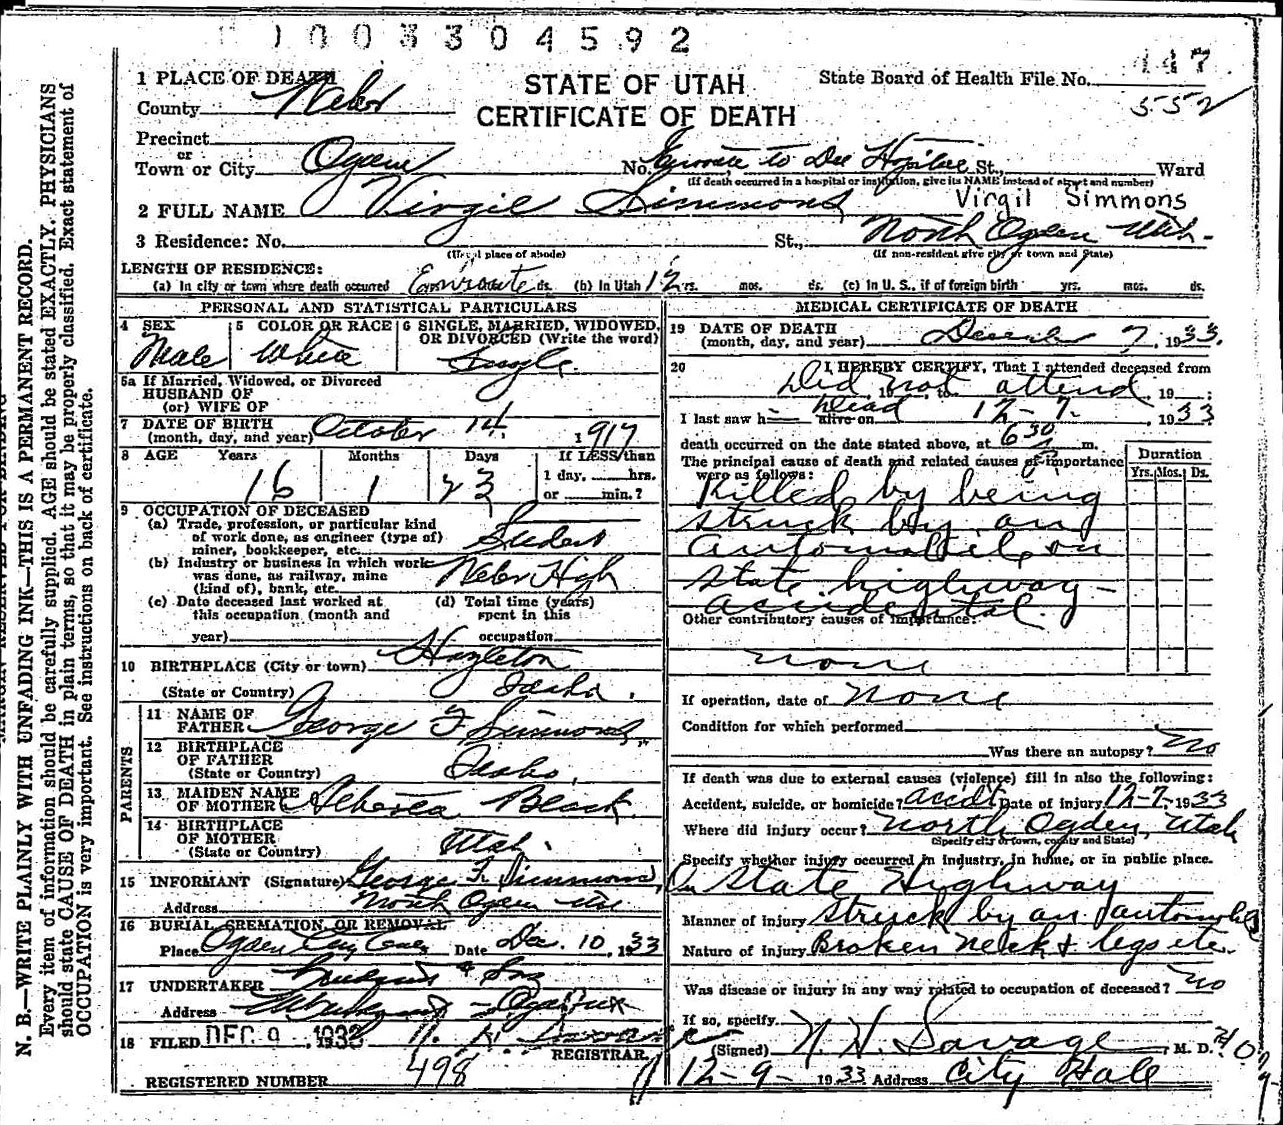 1003304592
1 PLACE OF DEATH
County Weber
STATE OF UTAH
CERTIFICATE OF DEATH
State Board of Health File No. 447
552
Precinct
or
Town or City Ogden No. Enroute to Dee Hospital St., Ward
(If death occurred in a hospital or institution, give its NAME instead of street and number)
2 FULL NAME Virgil Simmons Virgil Simmons
3 Residence: No. St., North Ogden Utah
(Usual place of abode) (If non-resident give city or town and State)
LENGTH OF RESIDENCE:
(a) In city or town where death occurred Enroute ds. (b) In Utah 12 yrs. mos. ds. (c) In U. S., if of foreign birth yrs. mos. ds.
PERSONAL AND STATISTICAL PARTICULARS
4 SEX Male
5 COLOR OR RACE White
6 SINGLE, MARRIED, WIDOWED, OR DIVORCED (Write the word) Single
5a If Married, Widowed, or Divorced
HUSBAND OF
(or) WIFE OF
7 DATE OF BIRTH
(month, day, and year) October 14. 1917
8 AGE Years Months Days If LESS than
16 1 23 1 day, hrs.
or min.?
9 OCCUPATION OF DECEASED
(a) Trade, profession, or particular kind
of work done, as engineer (type of)
miner, bookkeeper, etc. Student
(b) Industry or business in which work
was done, as railway, mine
(kind of), bank, etc. Weber High
(c) Date deceased last worked at
this occupation (month and
year)
(d) Total time (years)
spent in this
occupation
10 BIRTHPLACE (City or town) Hazleton
(State or Country) Idaho.
PARENTS
11 NAME OF
FATHER George F Simmons
12 BIRTHPLACE
OF FATHER
(State or Country) Idaho.
13 MAIDEN NAME
OF MOTHER Black
14 BIRTHPLACE
OF MOTHER
(State or Country) Utah.
15 INFORMANT (Signature) George F. Simmons,
Address North Ogden Utah
16 BURIAL, CREMATION, OR REMOVAL
Place Ogden City Date Dec. 10, 1933
17 UNDERTAKER & Sons
Address
18 FILED DEC 9 1933
REGISTRAR
REGISTERED NUMBER 498
MEDICAL CERTIFICATE OF DEATH
19 DATE OF DEATH
(month, day, and year) December 7, 1933.
20 I HEREBY CERTIFY, That I attended deceased from
Did not attend, 19 :
I last saw h dead alive on 12-7-, 1933
death occurred on the date stated above, at 6 30 P m.
The principal cause of death and related causes of importance
were as follows:
Duration
Yrs. Mos. Ds.
Killed by being
struck by an
automobile on
state highway-
accidental.
Other contributory causes of importance:
none
If operation, date of none
Condition for which performed
Was there an autopsy? No
If death was due to external causes (violence) fill in also the following:
Accident, suicide, or homicide? accid't Date of injury 12-7-1933
Where did injury occur? North Ogden, Utah
(Specify city or town, county and State)
Specify whether injury occurred in industry, in home, or in public place.
On State Highway
Manner of injury Struck by an automobile
Nature of injury Broken neck & legs etc.
Was disease or injury in any way related to occupation of deceased? No
If so, specify
(Signed) N. H. Savage, M. D.
12-9- 1933 Address City Hall
N. B.—WRITE PLAINLY WITH UNFADING INK—THIS IS A PERMANENT RECORD.
Every item of information should be carefully supplied. AGE should be stated EXACTLY. PHYSICIANS
should state CAUSE OF DEATH in plain terms, so that it may be properly classified. Exact statement of
OCCUPATION is very important. See instructions on back of certificate.